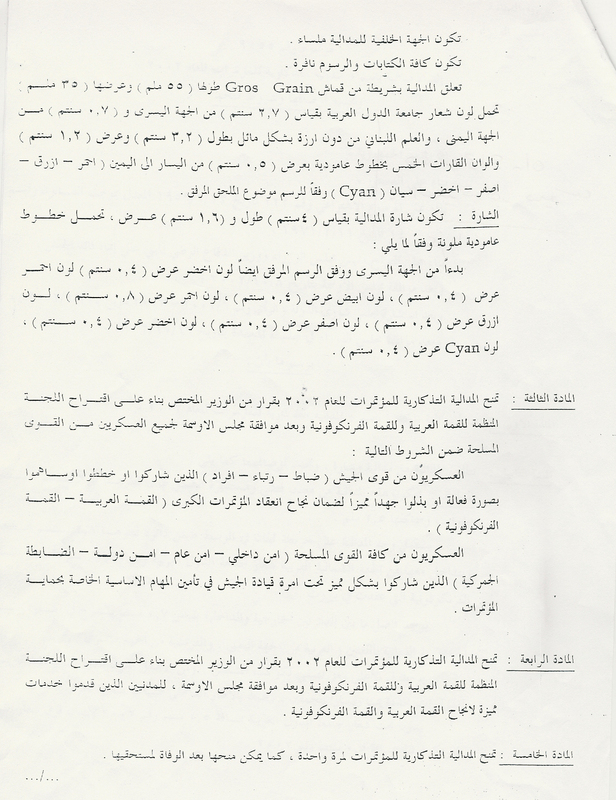 تكون الجهة الخلفية للمدالية ملساء .
تكون كافة الكتابات والرسوم نافرة .
تعلق المدالية بشريطة من قماش Gros Grain طولها ( ٥٥ ملم ) وعرضها ( ٣٥ ملم )
تحمل لون شعار جامعة الدول العربية بقياس ( ٢,٧ سنتم ) من الجهة اليسرى و ( ٠,٧ سنتم ) من
الجهة اليمنى ، والعلم اللبناني من دون ارزة بشكل مائل بطول ( ٣,٢ سنتم ) وعرض ( ١,٢ سنتم )
والوان القارات الخمس بخطوط عامودية بعرض ( ٠,٥ سنتم ) من اليسار الى اليمين ( احمر – ازرق –
اصفر – اخضر – سيان ( Cyan ) وفقاً للرسم موضوع الملحق المرفق .
الشارة : تكون شارة المدالية بقياس ( ٤سنتم ) طول و ( ١,٦ سنتم ) عرض ، تحمل خطوط
عامودية ملونة وفقاً لما يلي :
بدءاً من الجهة اليسرى ووفق الرسم المرفق ايضاً لون اخضر عرض ( ٠,٤ سنتم ) لون احمر
عرض ( ٠,٤ سنتم ) ، لون ابيض عرض ( ٠,٤ سنتم ) ، لون احمر عرض ( ٠,٨ سنتم ) ، لون
ازرق عرض ( ٠,٤ سنتم ) ، لون اصفر عرض ( ٠,٤ سنتم ) ، لون اخضر عرض ( ٠,٤ سنتم ) ،
لون Cyan عرض ( ٠,٤ سنتم ) .
المادة الثالثة : تمنح المدالية التذكارية للمؤتمرات للعام ٢٠٠٢ بقرار من الوزير المختص بناء على اقتراح اللجنة
المنظمة للقمة العربية وللقمة الفرنكوفونية وبعد موافقة مجلس الاوسمة لجميع العسكريين من القوى
المسلحة ضمن الشروط التالية :
العسكريون من قوى الجيش ( ضباط – رتباء – افراد ) الذين شاركوا او خططوا اوساهموا
بصورة فعالة او بذلوا جهداً مميزاً لضمان نجاح انعقاد المؤتمرات الكبرى ( القمة العربية – القمة
الفرنكوفونية ) .
العسكريون من كافة القوى المسلحة ( امن داخلي – امن عام – امن دولة – الضابطة
الجمركية ) الذين شاركوا بشكل مميز تحت امرة قيادة الجيش في تأمين المهام الاساسية الخاصة بحماية
المؤتمرات .
المادة الرابعة : تمنح المدالية التذكارية للمؤتمرات للعام ٢٠٠٢ بقرار من الوزير المختص بناء على اقتراح اللجنة
المنظمة للقمة العربية وللقمة الفرنكوفونية وبعد موافقة مجلس الاوسمة ، للمدنيين الذين قدموا خدمات
مميزة لانجاح القمة العربية والقمة الفرنكوفونية .
المادة الخامسة : تمنح المدالية التذكارية للمؤتمرات لمرة واحدة ، كما يمكن منحها بعد الوفاة لمستحقيها .
.../...